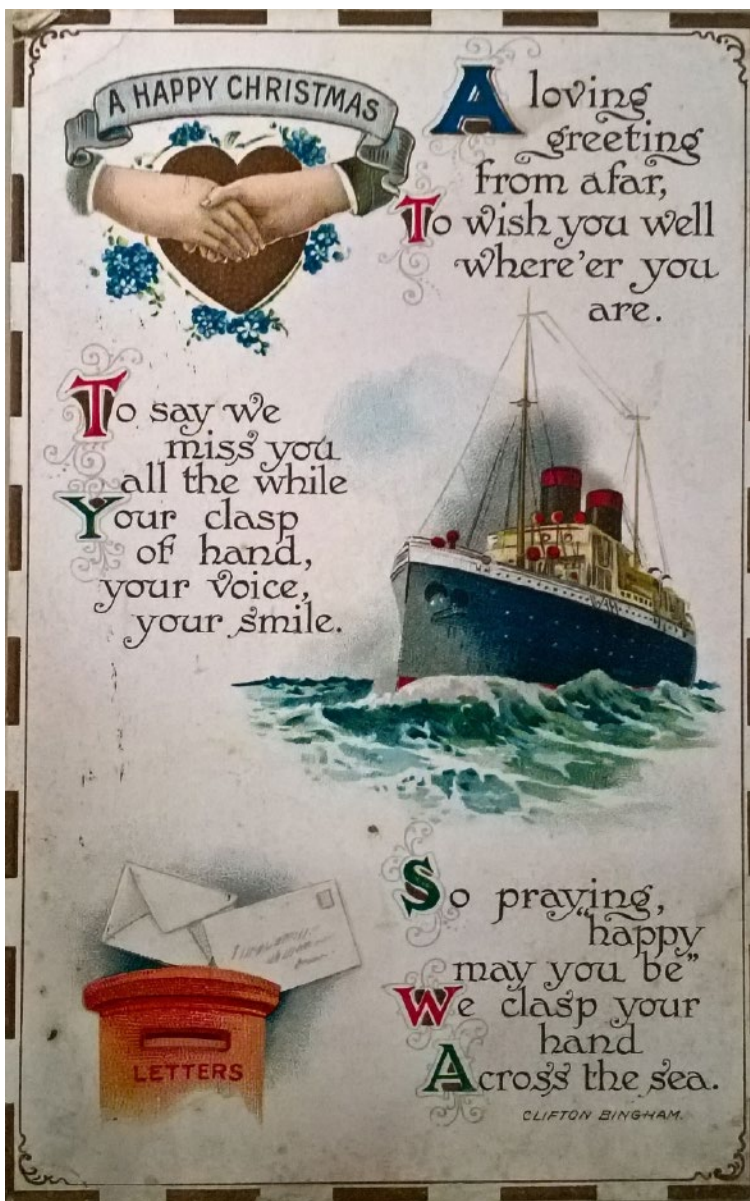 A HAPPY CHRISTMAS
A loving
greeting
from afar,
To wish you well
where'er you
are.
To say we
miss you
all the while
Your clasp
of hand,
your voice,
your smile.
So praying,
"happy
may you be"
We clasp your
hand
Across the sea.
CLIFTON BINGHAM.
LETTERS